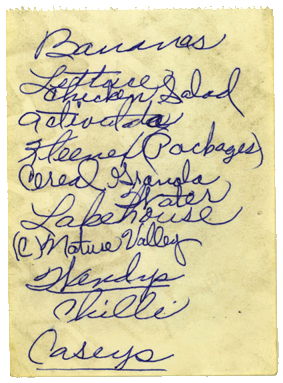 Bananas
Lettuce
Chicken Salad
Activada
Kleenex (Packages)
Cereal Granola
Water
Lakehouse
(C) Mature Valley
Wendys
Chilli
Caseys